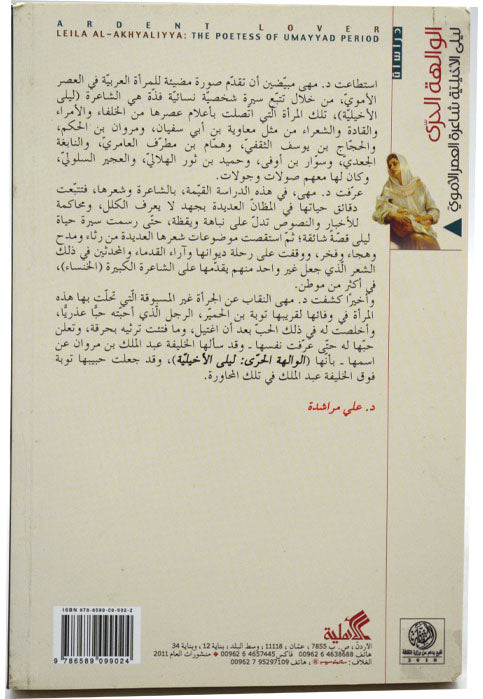 ARDENT LOVER
LEILA AL-AKHYALIYYA: THE POETESS OF UMAYYAD PERIOD
دراسة
الوالهة الحرّى
ليلى الأخيليّة شاعرة العصر الأموي
استطاعت د. مهى مبيّضين أن تقدّم صورة مضيئة للمرأة العربيّة في العصر
الأمويّ، من خلال تتبّع سيرة شخصيّة نسائيّة فذّة هي الشاعرة (ليلى
الأخيليّة)، تلك المرأة التي اتّصلت بأعلام عصرها من الخلفاء والأمراء
والقادة والشعراء من مثل معاوية بن أبي سفيان، ومروان بن الحكم،
والحجّاج بن يوسف الثقفيّ، وهمّام بن مطرّف العامريّ، والنابغة
الجعديّ، وسوّار بن أوفى، وحميد بن ثور الهلاليّ، والعجير السلوليّ،
وكان لها معهم صولات وجولات.
عرفت د. مهى، في هذه الدراسة القيّمة، بالشاعرة وشعرها، فتتبّعت
دقائق حياتها في المظانّ العديدة بجهد لا يعرف الكلل، ومحاكمة
للأخبار والنصوص تدلّ على نباهة ويقظة، حتّى رسمت سيرة حياة
ليلى قصّة شائقة؛ ثمّ استقصت موضوعات شعرها العديدة من رثاء ومدح
وهجاء وفخر، ووقفت على رحلة ديوانها وآراء القدماء والمحدثين في ذلك
الشعر الّذي جعل غير واحد منهم يقدّمها على الشاعرة الكبيرة (الخنساء)،
في أكثر من موطن.
وأخيرًا كشفت د. مهى النقاب عن الجرأة غير المسبوقة الّتي تحلّت بها هذه
المرأة في وفائها لقريبها توبة بن الحميّر، الرجل الّذي أحبّته حبًّا عذريًّا،
وأخلصت له في ذلك الحبّ بعد أن اغتيل، وما فتئت ترثيه بحرقة، وتعلن
حبّها له حتّى عرّفت نفسها - وقد سألها الخليفة عبد الملك بن مروان عن
اسمها - بأنّها (الوالهة الحرّى: ليلى الأخيليّة)، وقد جعلت حبيبها توبة
فوق الخليفة عبد الملك في تلك المحاورة.
د. علي مراشدة
ISBN 978-6589-09-902-4
9 786589 099024
الأهلية
الأردن، ص. ب 7855، عمّان 11118، وسط البلد، بناية 12، وبناية 34
هاتف 00962 6 4638688 فاكس 00962 6 4657445 ♦ منشورات العام 2011
الغلاف: هاتف 00962 7 95297109
2010